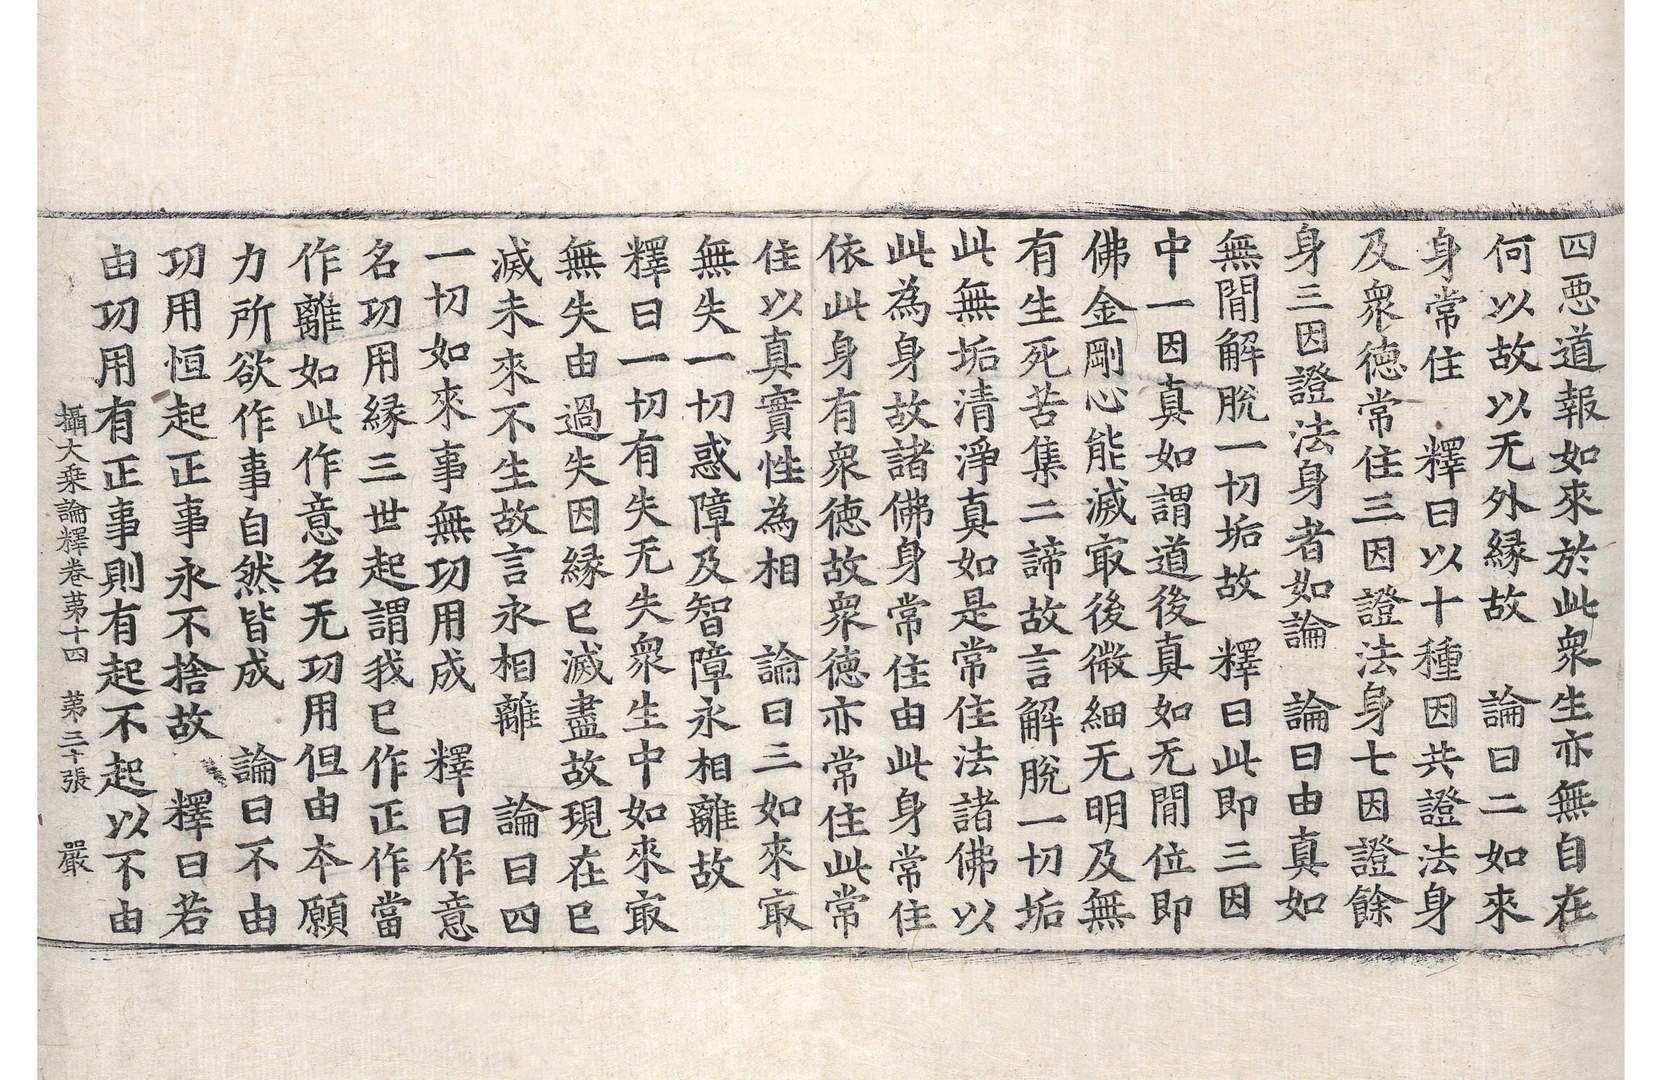 四悪道報如來於此衆生亦無自在
何以故以无外縁故　論曰二如來
身常住　釋曰以十種因共證法身
及衆德常住三因證法身七因證餘
身三因證法身者如論　論曰由真如
無閒解脫一切垢故　釋曰此即三因
中一因真如謂道後真如无閒位即
佛金剛心能滅㝡後微細无明及無
有生死苦集二諦故言解脫一切垢
此無垢清淨真如是常住法諸佛以
此為身故諸佛身常住由此身常住
依此身有衆德故衆德亦常住此常
住以真實性為相　論曰三如來㝡
無失一切惑障及智障永相離故
釋曰一切有失无失衆生中如來㝡
無失由過失因縁已滅盡故現在已
滅未來不生故言永相離　論曰四
一切如來事無功用成　釋曰作意
名功用縁三世起謂我已作正作當
作離如此作意名无功用但由夲願
力所欲作事自然皆成　論曰不由
功用恒起正事永不捨故　釋曰若
由功用有正事則有起不起以不由
攝大乘論釋卷苐十四　第三十張　嚴